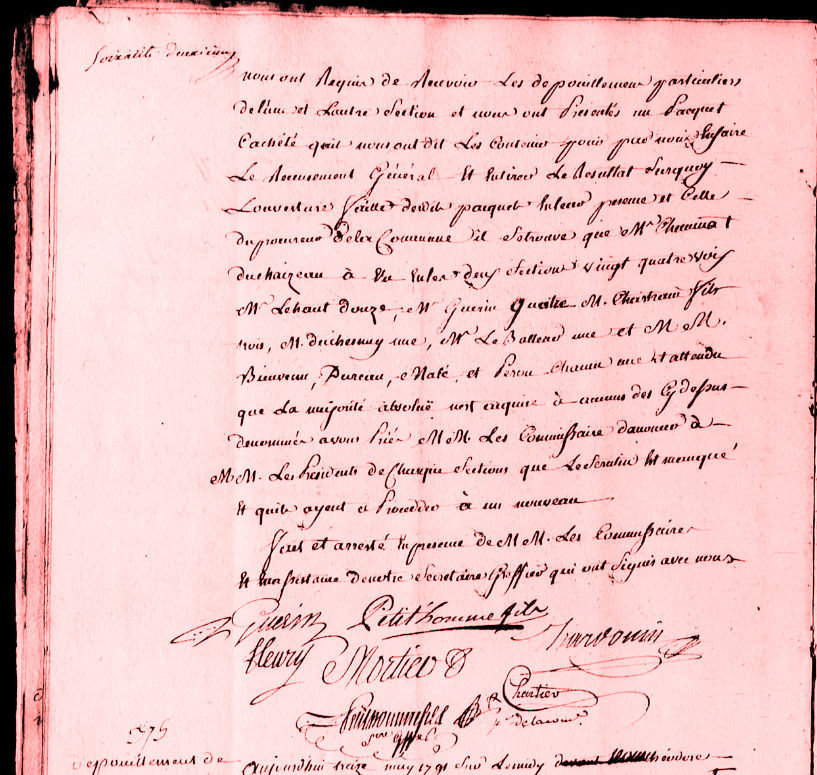 Soixante deuxieme
nous ont Requis de Recevoir Les depouillement particuliers
de lune et Lautre Section et nous ont Presentés un Pacquet
Cacheté quil nous ont dit Les Contenir pour par nous En faire
Le Recensement Général Et En tirer Le Resultat Surquoy
Louverture faitte dudit pacquet En leur presence et Celle
du procureur de la Commune il Setrouve que Mr Chemina
duchaizeau à Eu En les deux Section vingt quatre voix
Mr Lehaut douze, Mr Guerin quatre M. Chistream fils
trois, M. duchesnay une, Mr Le Batteur une et M M.
Bienvenu, Dureau, Nalé, et Peron Chacun une Et attendu
que La majorité absoluë nest acquise à aucuns des Cy dessus
denommée avons Priés M M. Les Commissaire danoncer à
M M. Les Presidents de Chaque Sections que Le Scrutin Est manqué
Et quils ayent a Proceder à un nouveau
Fait et arresté En presence de M M. Les Commissaires
Et Lassistance de notre Secretaire Greffier qui ont Signés avec nous
Guerin Petit'homme fils Hardouin
fleury Mortier
Chartier
pr de la com.
1791
depouillement de Aujourdhui treize may 1791 Sur Lemidy devant nous theodore